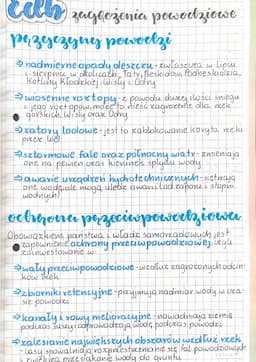 zagrożenia powodziowe
przyczyny powodzi
⇒ nadmierne opady deszczu - zwłaszcza w lipcu
i sierpniu w okolicach Tatr, Beskidów, Podbeskidzia,
Kotliny Kłodzkiej, Wisły i Odry
⇒ wiosenne roztopy - z powodu dużej ilości śniegu
i jego roztopów, może to nieść zagrożenie dla rzek
górskich, Wisły oraz Odry
⇒ zatory lodowe - jest to zablokowanie koryta rzeki
przez lód
⇒ sztormowe fale oraz północny wiatr - zmieniają
one na pewien czas kierunek spływu wody
⇒ awarie urządzeń hydrotechnicznych -
one wodę, ale mogą ulec awarii (od zapory i stopni
wodnych)
ochrona przeciwpowodziowa
Obowiązkiem państwa i władz samorządowych jest
zapewnienie ochrony przeciwpowodziowej, czyli
zainwestowanie w:
⇒ wały przeciwpowodziowe - wzdłuż zagrożonych odcin-
ków rzek
⇒ zbiorniki retencyjne - przyjmują nadmiar wody w cza-
sie powodzi
⇒ kanały i rowy melioracyjne - nawadniają ziemię
podczas suszy, odprowadzają wodę podczas powodzi
⇒ zalesianie największych obszarów wzdłuż rzek
- lasy spowalniają rozprzestrzenianie się fal powodziowych
i zwiększa przesiąkanie wody do gruntu